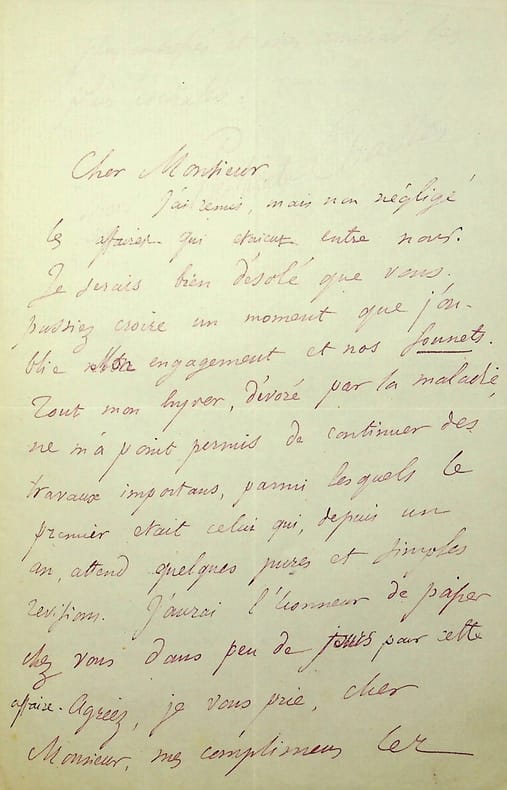 Cher Monsieur
J'ai remis, mais non négligé
les affaires qui etaient entre nous.
Je serais bien désolé que vous
pussiez croire un moment que j'ou-
blie mon engagement et nos sonnets.
Tout mon hyver, dévoré par la maladie,
ne m'a point permis de continuer des
travaux importans, parmi lesquels le
premier etait celui qui, depuis un
an, attend quelques pures et simples
revisions. J'aurai l'honneur de passer
chez vous dans peu de jours pour cette
affaire. Agréez, je vous prie, cher
Monsieur, mes complimens les